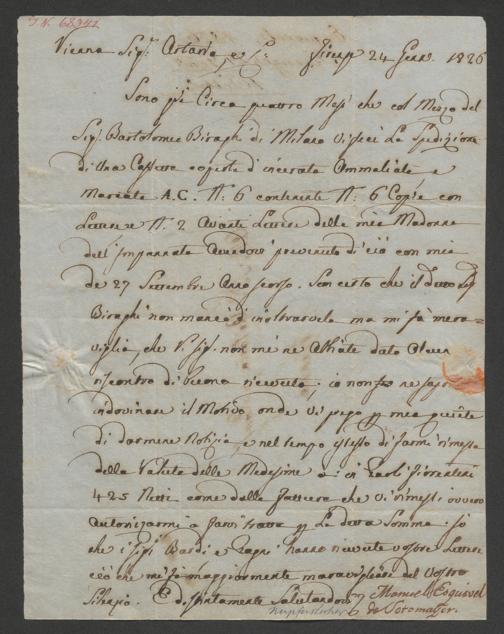 I.N. 68941
Vienna Sig.i Artaria e C.i Firenze 24 Genn. 1826
Sono già Circa quattro Mesi che col Mezzo del
Sig.r Bartolomeo Biraghi di Milano Vi feci La Spedizione
di Una Cassetta coperta d'incerata Ammaliata e
Marcata A.C. N.o 6 contenente N.o 6 Copie con
Lettere e N.o 2 Avanti Lettere della mia Madonna
dell'Impannata Avendovi prevenuto di ciò con mia
de 27 Settembre Anno scorso. Son certo che il detto Sig.r
Biraghi non mancò d'inoltrarvela ma mi fà mera=
viglia, che V. Sig.i non me ne Abbiate dato Alcun
riscontro di buona ricevuta; io non so
indovinare il Motivo, onde Vi prego p mia quiete
di darmene Notizia, e nel tempo istesso di farmi rimessa
della Valuta delle Medesime Fiorentini
425 Netti come dalla Fattura che Vi rimessi ovvero
autorizarmi a farvi tratta p La detta Somma. Sò
che i Sig.i Bardi e Pagni hanno ricevute vostre Lettere
ciò che mi fà maggiormente maravigliare del Vostro
Silenzio. E distintamente Salutandovi
Manuel Esquivel
de Sotomayor.
Kupferstecher